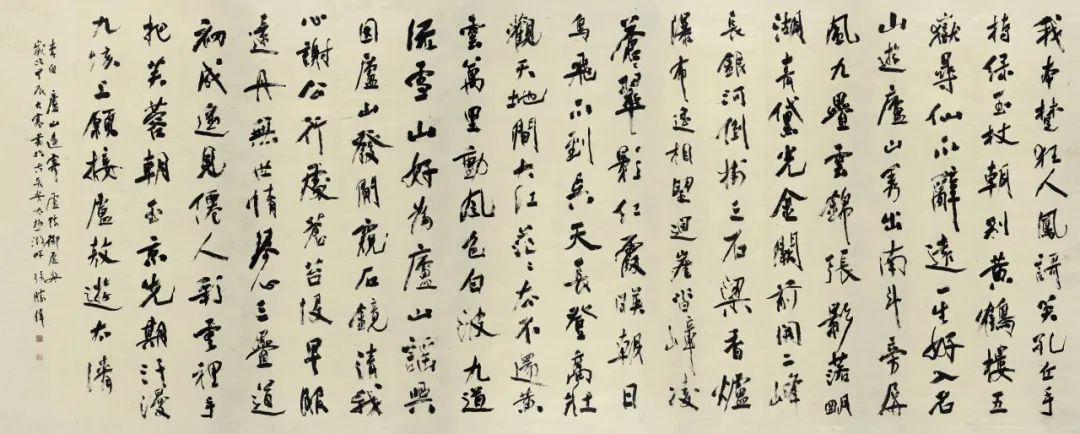 我本楚狂人鳳謌笑孔丘手
持綠玉杖朝別黃鶴樓五
嶽尋仙不辭遠一生好入名
山遊廬山秀出南斗旁屏
風九疊雲錦張影落明
湖青黛光金闕前開二峰
長銀河倒掛三石梁香爐
瀑布遙相望迴崖沓嶂凌
蒼蒼翠影紅霞映朝日
鳥飛不到吳天長登高壯
觀天地間大江茫〻去不還黃
雲萬里動風色白波九道
流雪山好為廬山謠興
因廬山發閒窺石鏡清我
心謝公行處蒼苔沒早服
還丹無世情琴心三疊道
初成遙見僊人彩雲裡手
把芙蓉朝玉京先期汗漫
九垓上願接盧敖遊太清
李白 廬山謠寄盧侍御虛舟
歲次甲辰大寒書於古長安